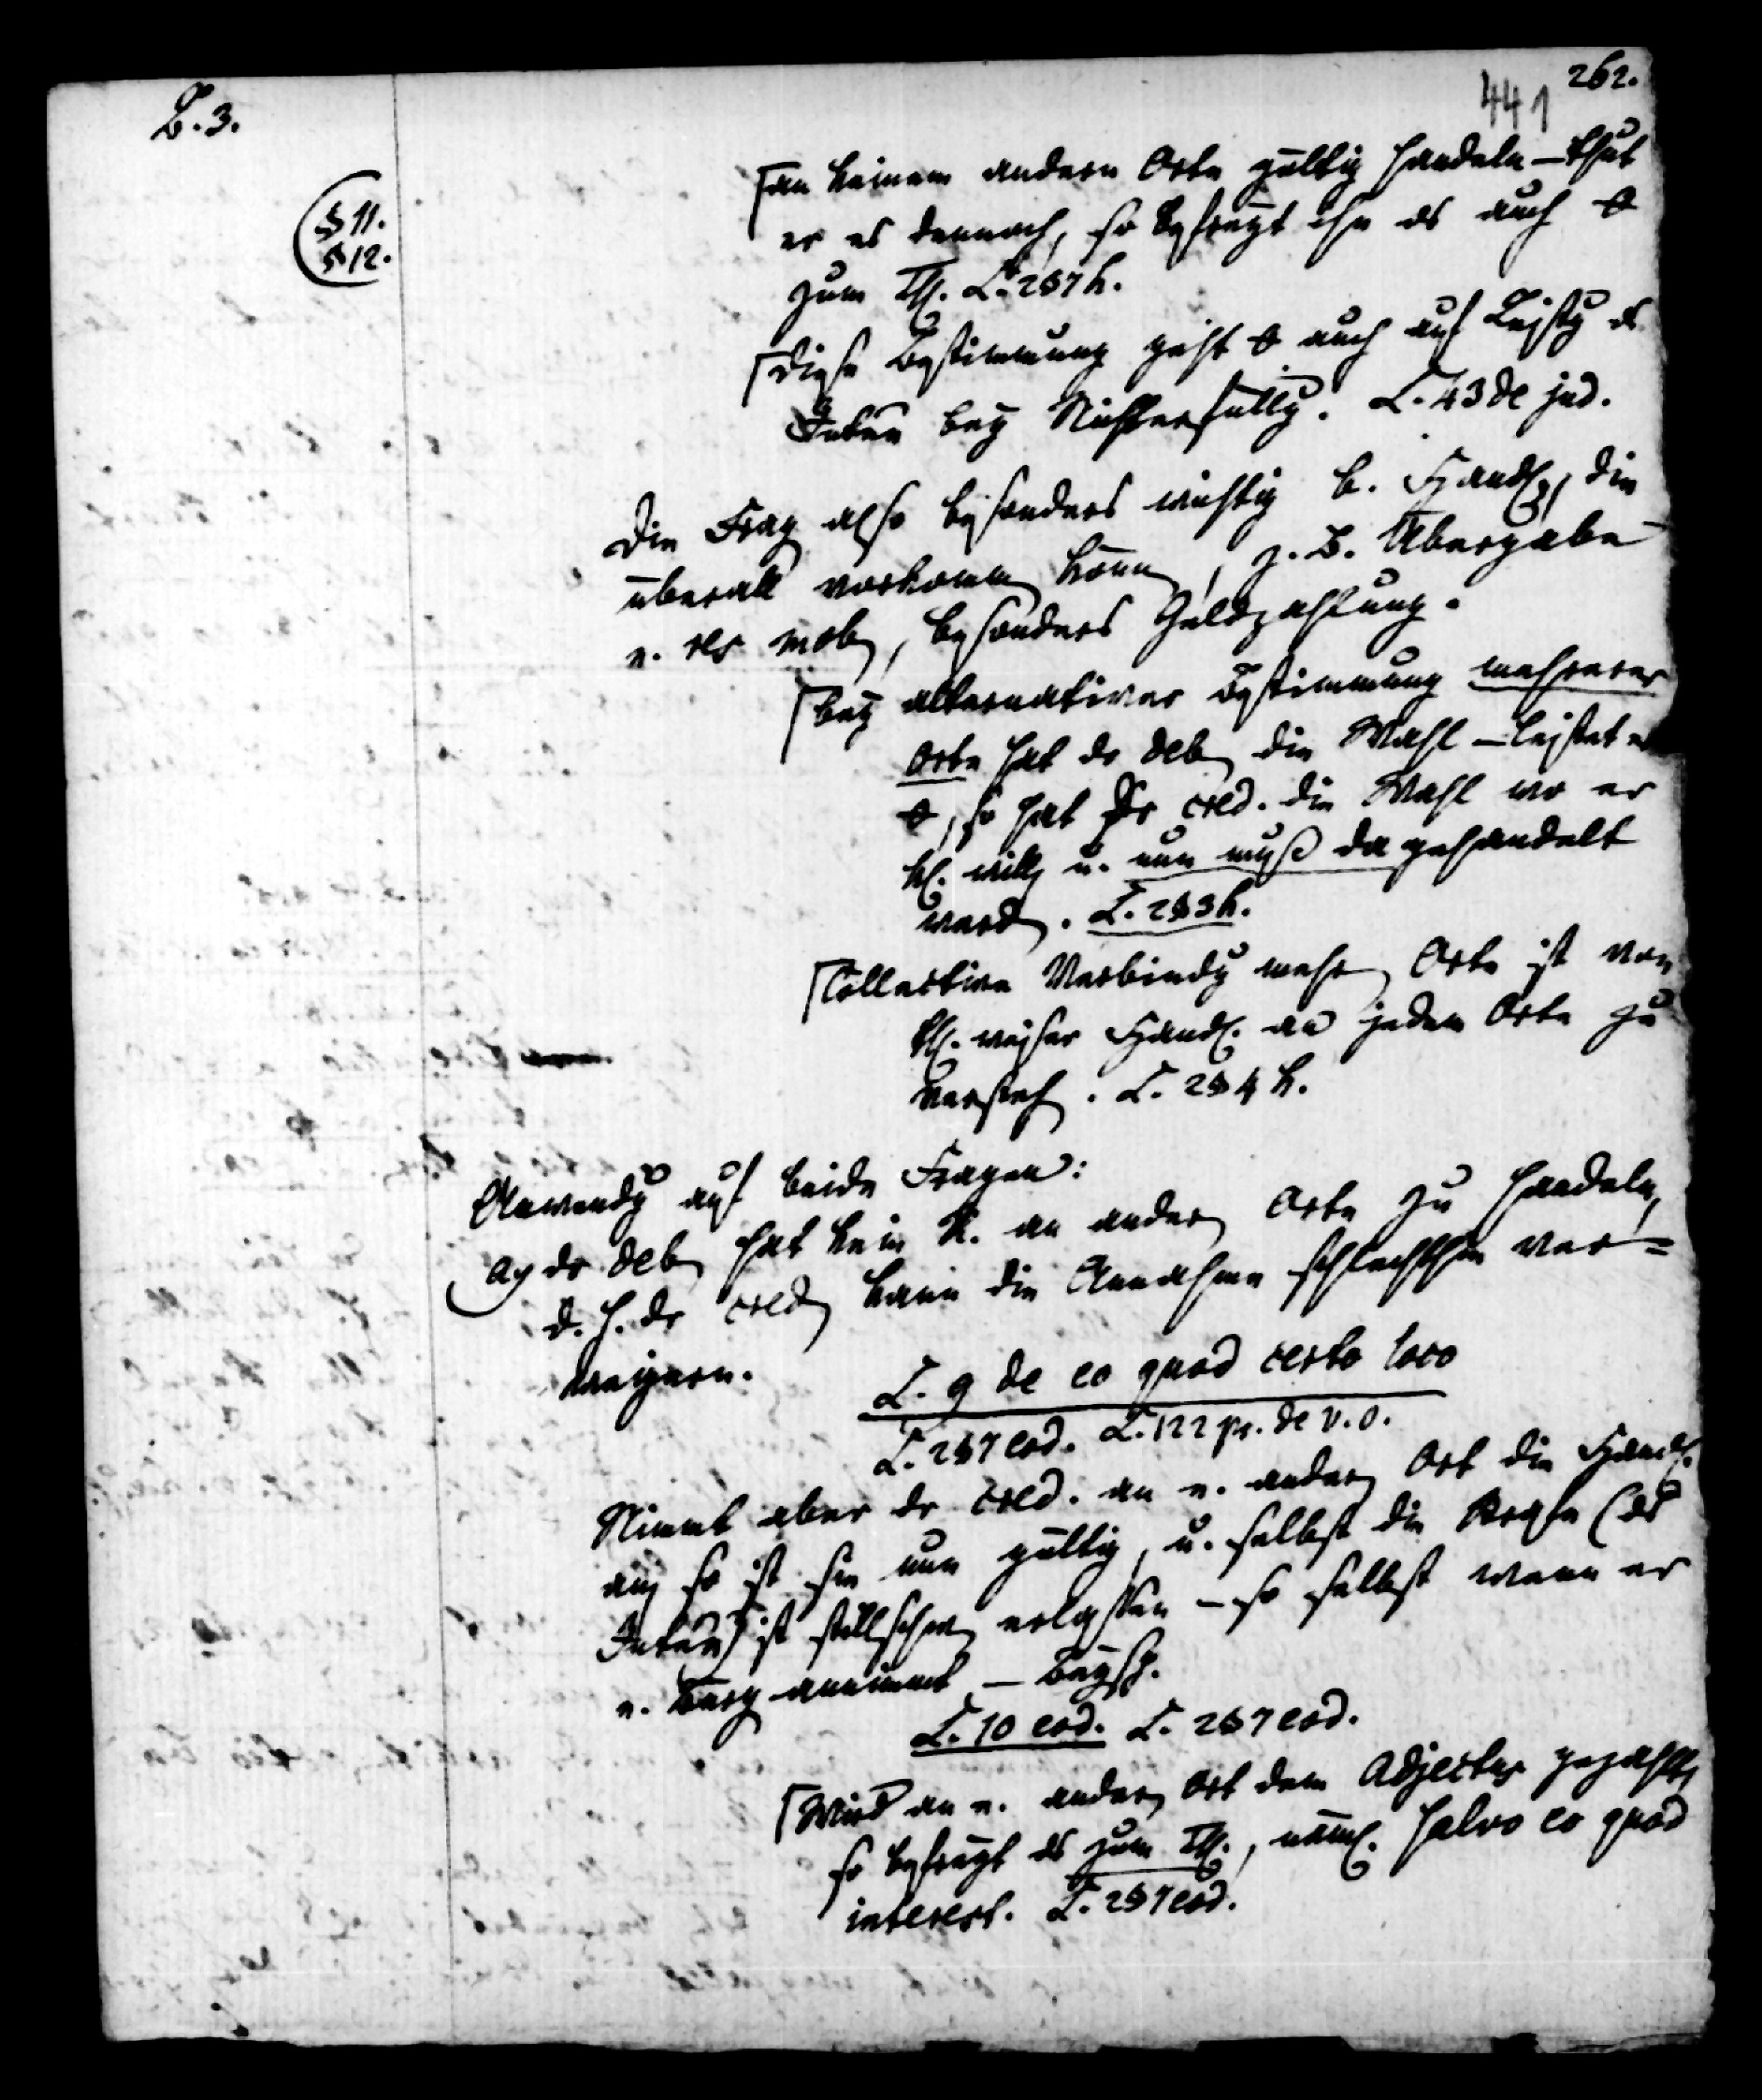 262.
441
B. 3.
§ 11.
§ 12.
[an keinem andern Orte gültig handeln – thut
er es dennoch, so befreyt ihn ds auch
zum Th. L. 2 § 7 h.
[Diese Bestimmung geht auch auf Leistg ds
Interen bey Nichterfüllg. L. 43 de jud.
Die Frag also besonders wichtig b. Handl, die
überall vorkomm könn, z. B. Übergabe
e. res mob, besonders Geldzahlung.
[bey alternativer Bestimmung mehrerer
Orte hat dr deb die Wahl – leistet er
, so hat dr cred. die Wahl wo er
kl. will u. nun muß da gehandelt
werd. L. 2 § 3 h.
[Collective Verbindg mehr Orte ist von
thl. weiser Handl. an jedem Orte zu
versteh. L. 2 § 4 h.
Anwendg auf beide Fragen:
a) dr deb hat kein R. an ander Orte zu handeln,
d. h. dr cred kann die Annahme schlechthin ver=
weigern.
L. 9 de eo quod certo loco
L. 2 § 7 eod. L. 122 pr. de v. o.
Nimmt aber dr cred. an e. ander Ort die Handl.
an, so ist sie nun gültig, u. selbst die (ds
Interen) ist stillschw erlassen – so selbst wenn er
e. Bürg annimmt – Beysp.
L. 10 eod. L. 2 § 7 eod.
[Wird an e. ander Ort dem Adjectus gezahlt,
so befreyt ds zum Th., näml. salvo eo quod
interest. L. 2 § 7 eod.